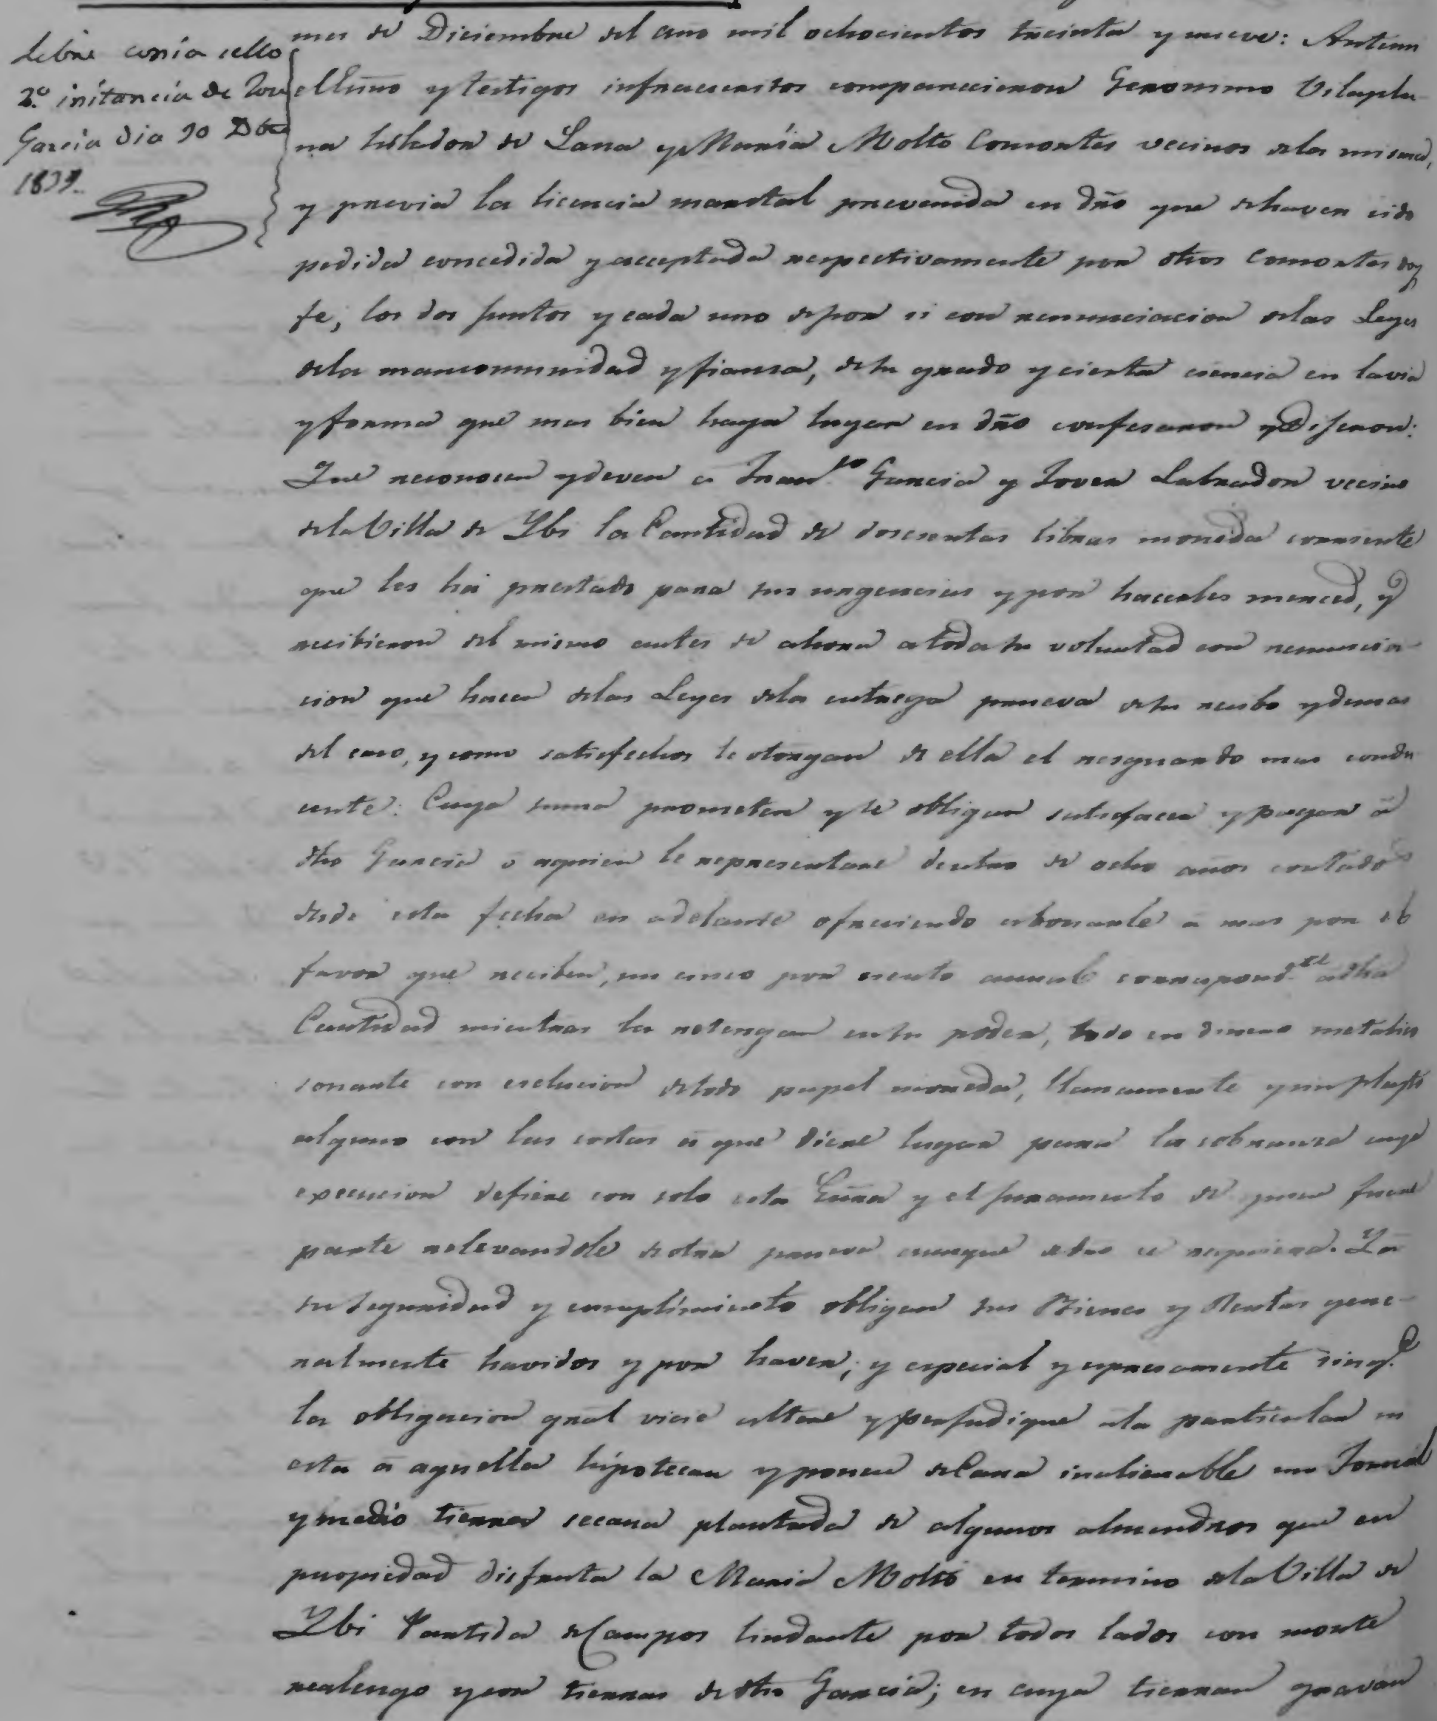 Libre copia sello
2.º instancia de
Garcia dia 30 Dbre
1839.
mes de Diciembre del año mil ochocientos treinta y nueve: Ante mi
el Esno y testigos infraescritos comparecieron Geronimo Vilapla-
na texedor de Lana y Maria Molto Consortes vecinos de la misma,
y previa la licencia marital prevenida en dño que de haver sido
pedida concedida y acceptada respectivamente por dhos Consortes doy
fe, los dos juntos y cada uno de por si con renunciacion de las Leyes
de la mancomunidad y fianza, de su grado y cierta ciencia en la via
y forma que mas bien haya lugar en dño confesaron y Dijeron:
Que reconocen y deven a Fran.co Garcia y Joven Labrador vecino
de la Villa de Ybi la Cantidad de doscientas libras moneda corriente
que les ha prestado para sus urgencias y por hacerles merced, y
recibieron del mismo antes de ahora a toda su voluntad con renuncia-
cion que hacen de las Leyes de la entrega prueva de su recibo y demas
del caso, y como satisfechos le otorgan de ella el resguardo mas condu-
cente: Cuya suma prometen y se obligan satisfacer y pagar à
dho Garcia o a quien le representare dentro de ocho años contados
desde esta fecha en adelante ofreciendo abonarle a mas por el
favor que reciben, un cinco por ciento annual correspond.te a dha
Cantidad mientras la retengan en su poder, todo en dinero metalico
sonante con esclusion de todo papel moneda, llanamente y sin pleyto
alguno con las costas à que diere lugar para la cobranza cuya
execucion defiere con solo esta Esñra y el juramento de quien fuere
parte relevandole de otra prueva aunque de dño se requiera. Y a
su seguridad y cumplimiento obligan sus Bienes y Rentas gene-
ralmente havidos y por haver; y especial y espresamente sin q.e
la obligacion gral vicie altere y perjudique a la particular ni
esta à aquella hipotecan y ponen de Cara inalienable un Jornal
y medio tierra secana plantada de algunos almendros que en
propiedad disfruta la Maria Molto en termino de la Villa de
Ybi Partida de Campos lindante por todos lados con monte
realengo y con tierras de dho Garcia; en cuya tierran gravan